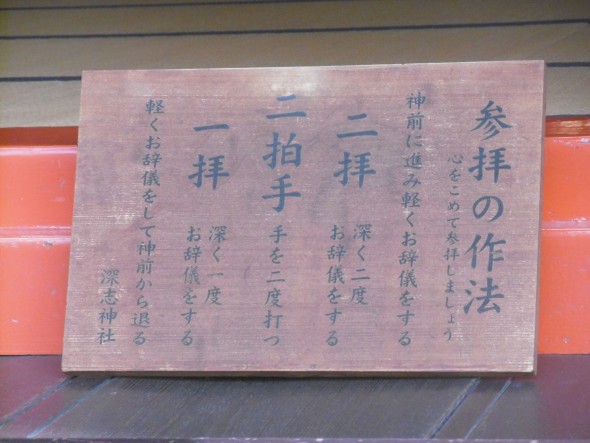 参拝の作法
心をこめて参拝しましょう
神前に進み軽くお辞儀をする
二拝
深く二度
お辞儀をする
二拍手
手を二度打つ
一拝
深く一度
お辞儀をする
軽くお辞儀をして神前から退る
深志神社